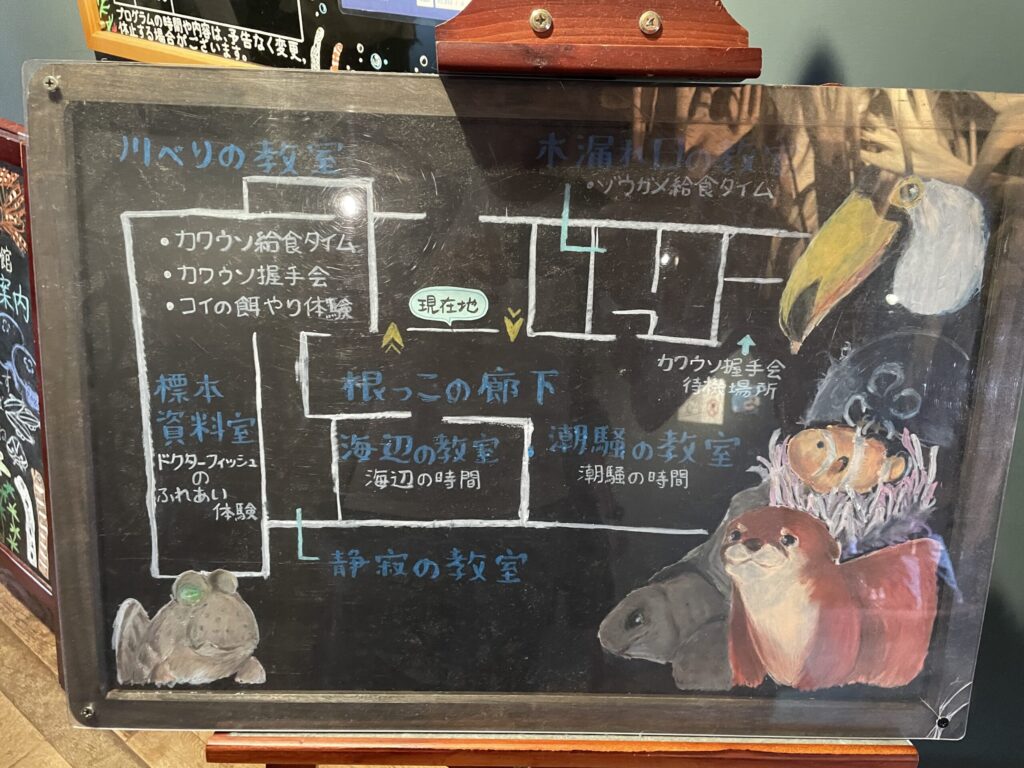 プログラムの時間や内容は、予告なく変更、
休止する場合がございます。
館
案内
川べりの教室
・カワウソ給食タイム
・カワウソ握手会
・コイの餌やり体験
水漏れ口の教室
・ゾウガメ給食タイム
現在地
カワウソ握手会
待機場所
標本
資料室
ドクターフィッシュ
の
ふれあい
体験
根っこの廊下
海辺の教室
海辺の時間
潮騒の教室
潮騒の時間
静寂の教室